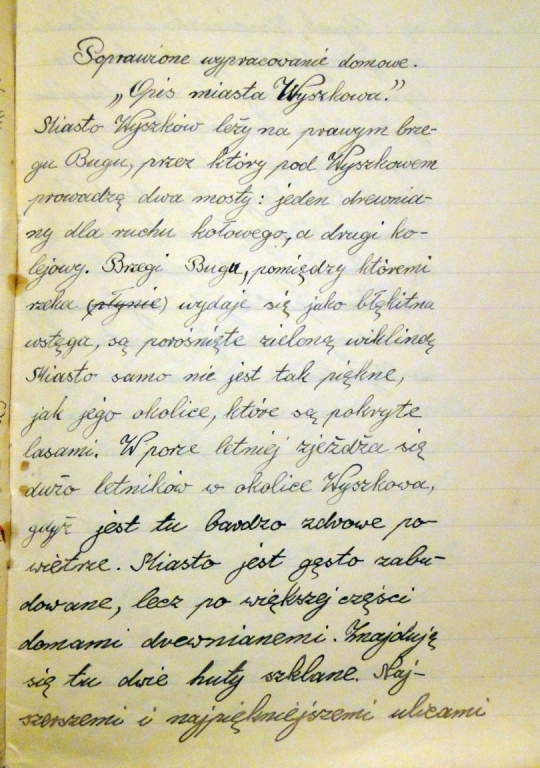 Poprawione wypracowanie domowe.
„Opis miasta Wyszkowa."
Miasto Wyszków leży na prawym brze-
gu Bugu, przez który pod Wyszkowem
prowadzą dwa mosty: jeden drewnia-
ny dla ruchu kołowego, a drugi ko-
lejowy. Brzegi Bugu, pomiędzy któremi
rzeka (płynie) wydaje się jako błękitna
wstęga, są porośnięte zieloną wikliną
Miasto samo nie jest tak piękne,
jak jego okolice, które są pokryte
lasami. W porze letniej zjeżdża się
dużo letników w okolice Wyszkowa,
gdyż jest tu bardzo zdrowe po-
wietrze. Miasto jest gęsto zabu-
dowane, lecz po większej części
domami drewnianemi. Znajdują
się tu dwie huty szklane. Naj-
szerszemi i najpiękniejszemi ulicami